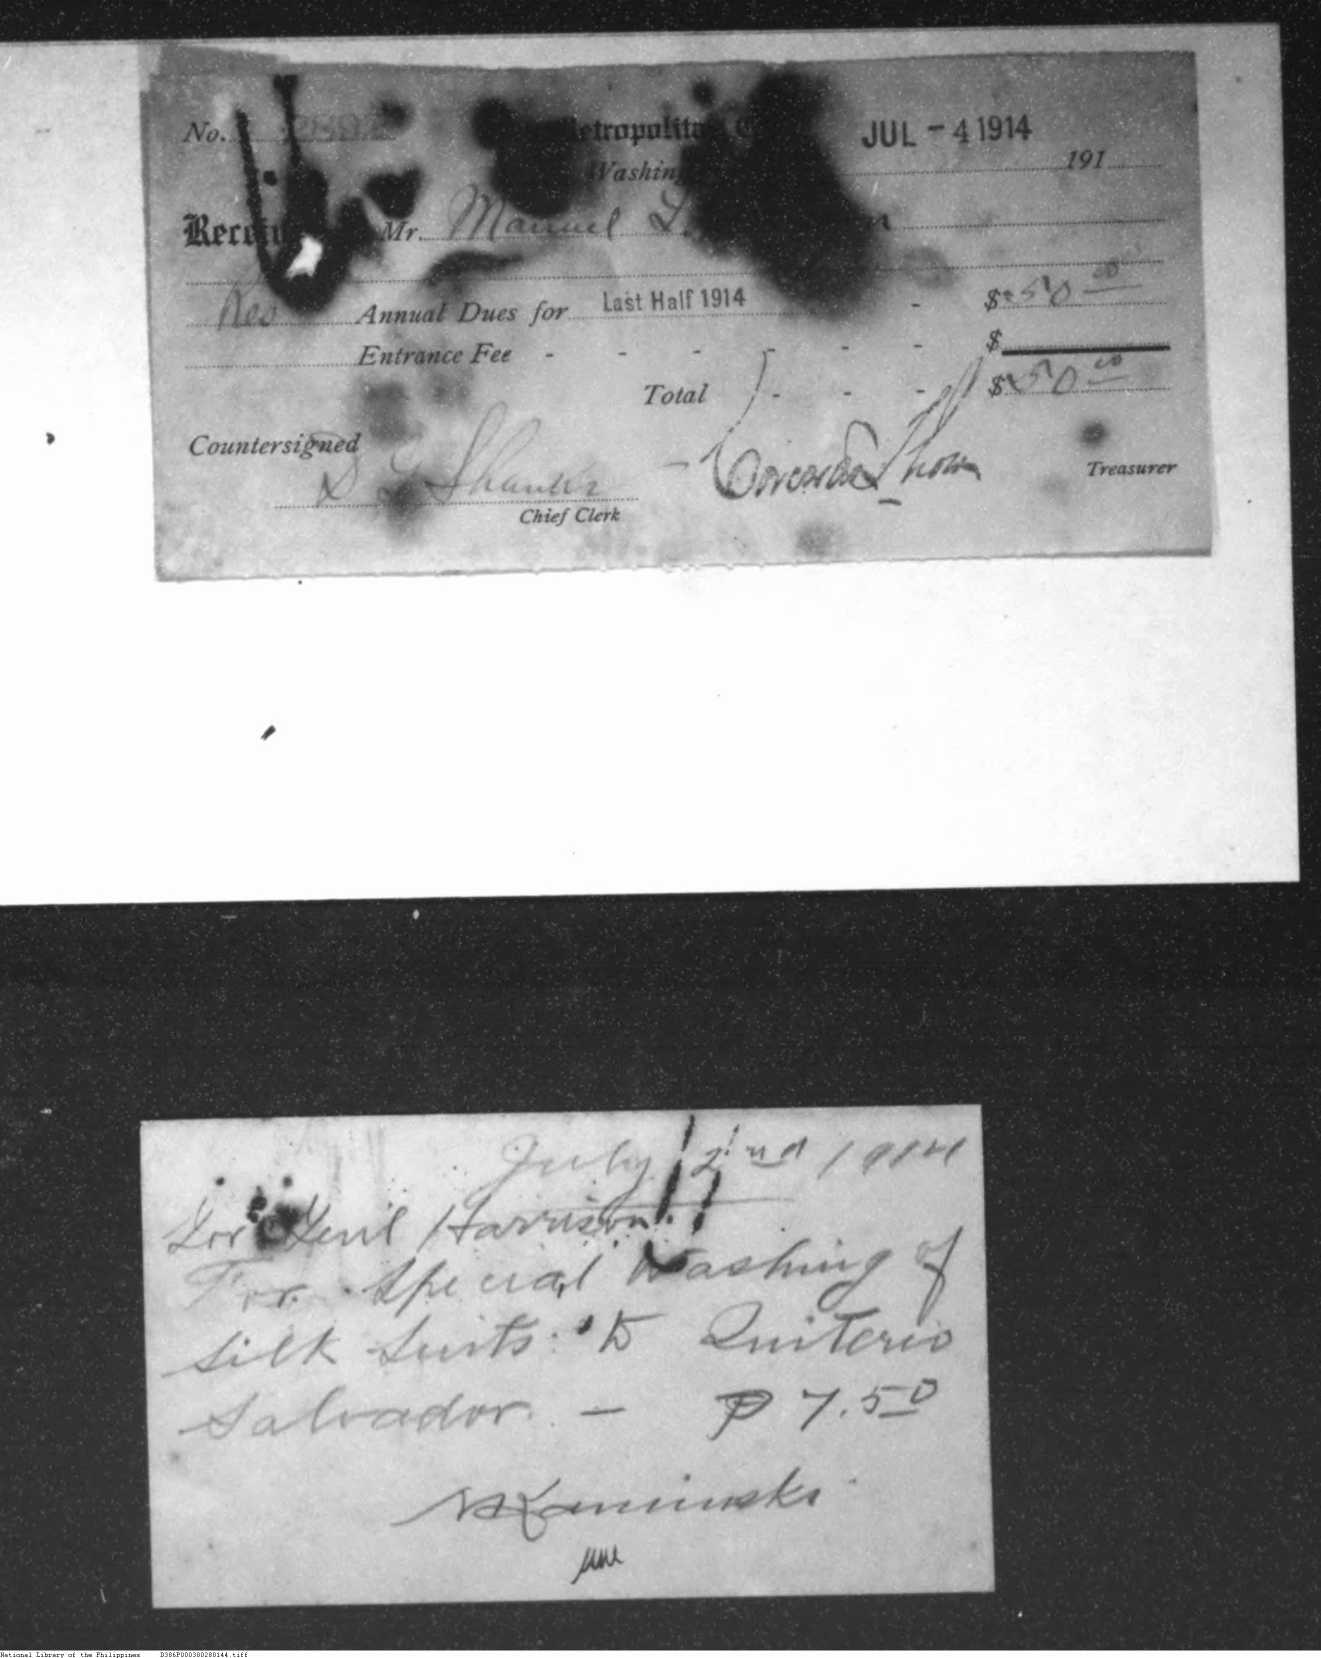 No.
etropolita
JUL - 4 1914
Washin
191
Mr. Manuel L.
Res Annual Dues for Last Half 1914 - $ 50 00
Entrance Fee - - - - - - $
Total - - - $ 50 00
Countersigned
Treasurer
Chief Clerk
July 2nd 1914
For Genl Harrison
For Special Washing of
Silk Suits: to Quiterio
Salvador. - ₱ 7.50
Kaminski
National Library of the Philippines D386P000300280144.tiff